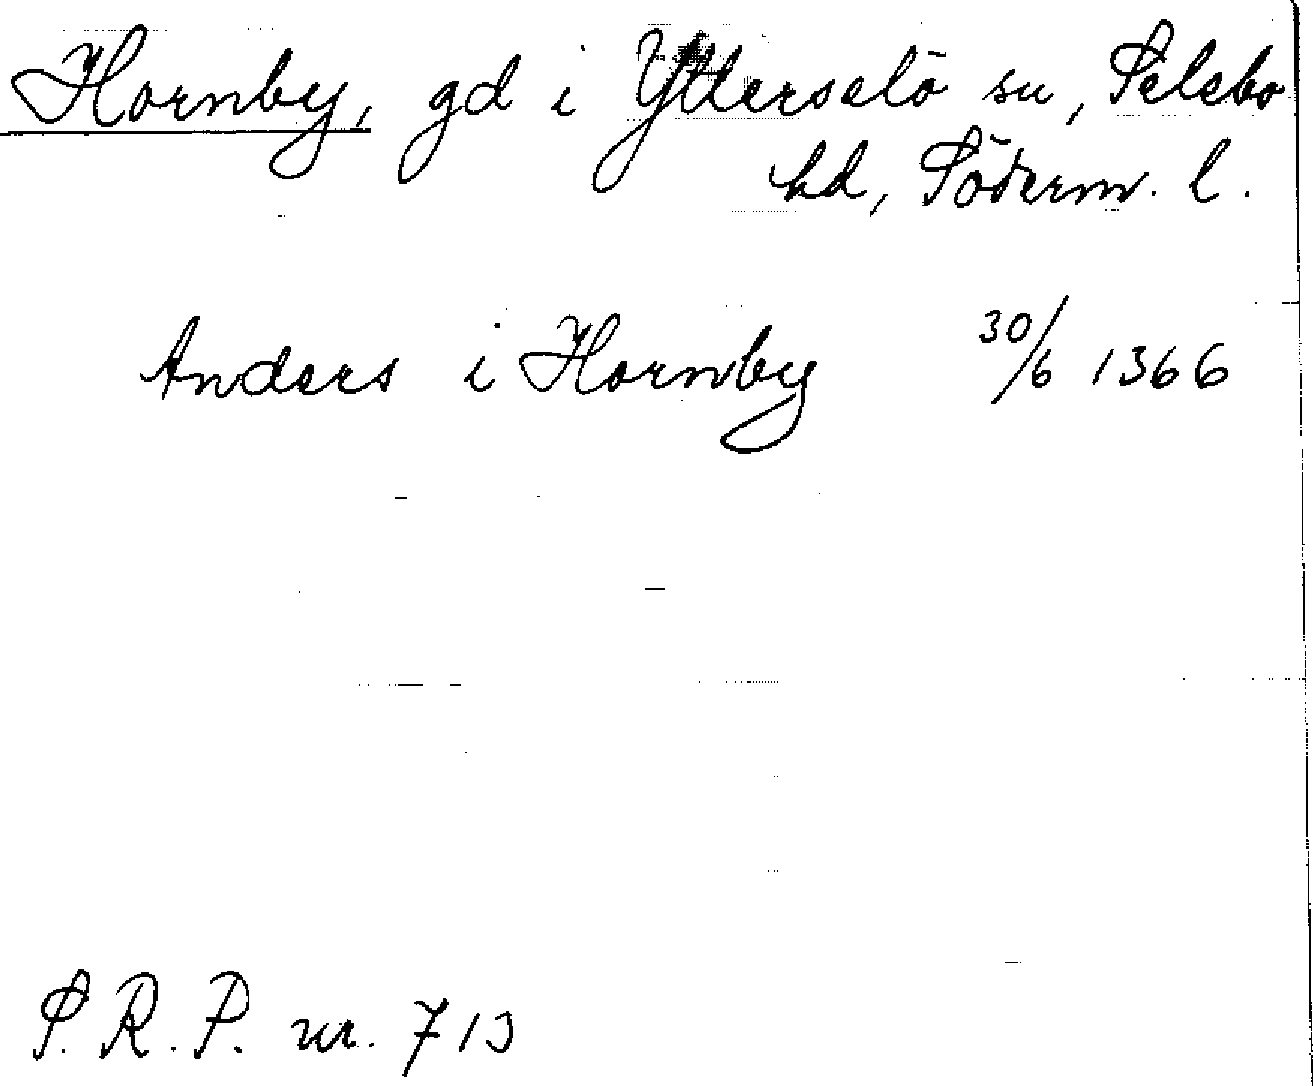 Hornby, gd i Ytterselö sn, Selebo
hd, Söderm. l.
Anders i Hornby 30/6 1366
S. R. P. nr. 713